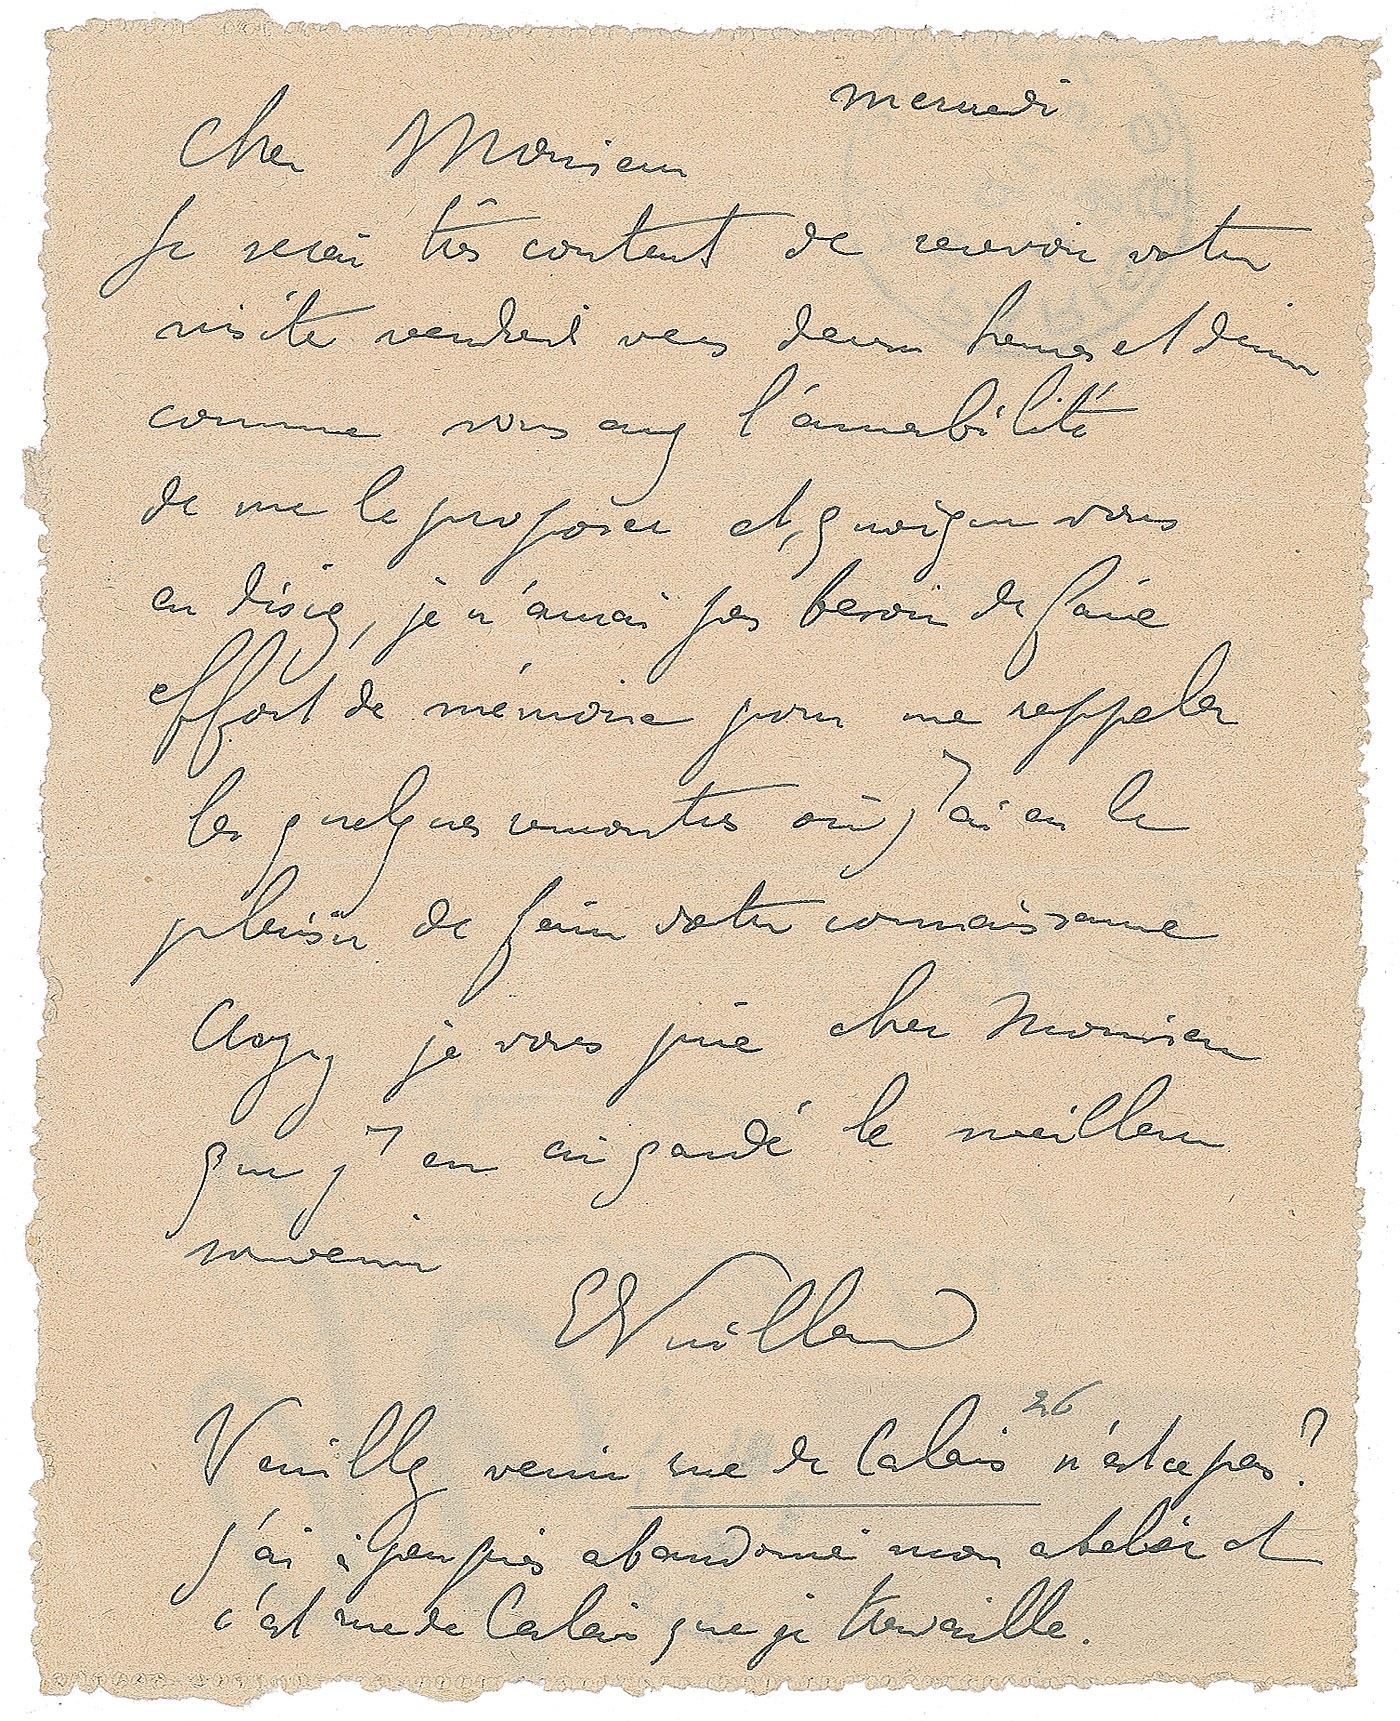 mercredi
Cher Monsieur
Je serai très content de recevoir votre
visite vendredi vers deux heures et demie
comme vous avez l'amabilité
de me le proposer et, quoique vous
en disiez, je n'aurai pas besoin de faire
effort de mémoire pour me rappeler
les quelques rencontres où j'ai eu le
plaisir de faire votre connaissance
Croyez je vous prie cher Monsieur
que j'en ai gardé le meilleur
souvenir
EVuillard
26
Veuillez venir rue de Calais n'est ce pas?
J'ai à peu près abandonné mon atelier et
c'est rue de Calais que je travaille.